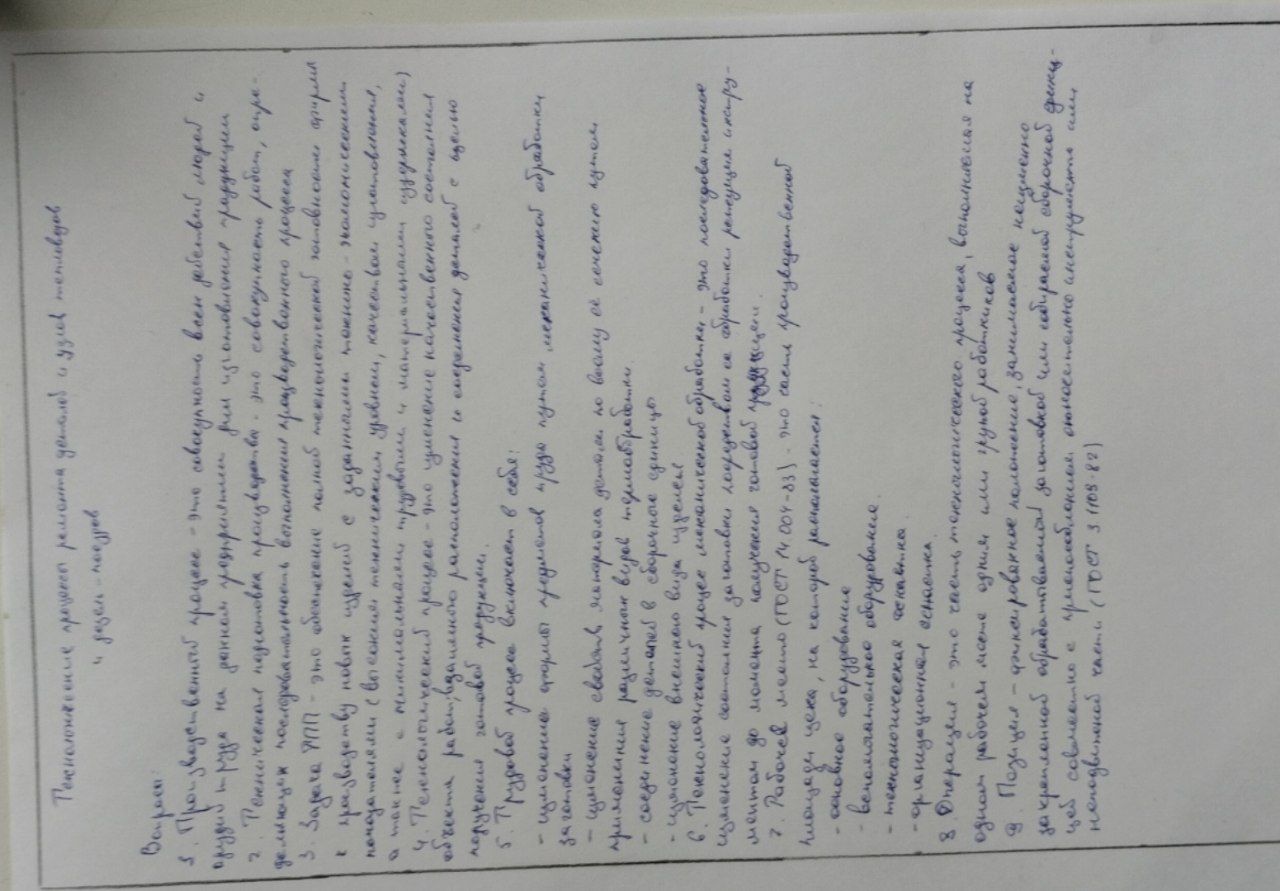 Технологические процессы ремонта деталей и узлов тепловозов
и дизель-поездов
Вопросы:
1. Производственный процесс - это совокупность всех действий людей и
орудий труда на данном предприятии для изготовления продукции
2. Техническая подготовка производства - это совокупность работ, опре-
деляющих последовательность выполнения производственного процесса
3. Задача ТПП - это обеспечение полной технологической готовности фирмы
к производству новых изделий с заданными технико-экономическими
показателями (высоким техническим уровнем, качеством изготовления,
а также с минимальными трудовыми и материальными издержками)
4. Технологический процесс - это изменение качественного состояния
объекта работ, взаимного расположения и соединения деталей с целью
получения готовой продукции.
5. Трудовой процесс включает в себя:
- изменение формы предметов труда путем механической обработки
заготовки
- изменение свойств материала детали по всему её сечению путем
применения различных видов термообработки
- соединение деталей в сборочные единицы
- изменение внешнего вида изделия
6. Технологический процесс механической обработки - это последовательное
изменение состояния заготовки посредством её обработки режущим инстру-
ментом до момента получения готовой продукции.
7. Рабочее место (ГОСТ 14.004-83) - это часть производственной
площади цеха, на которой располагается:
- основное оборудование
- вспомогательное оборудование
- технологическая оснастка
- организационная оснастка.
8. Операция - это часть технологического процесса, выполняемая на
одном рабочем месте одним или группой работников
9. Позиция - фиксированное положение, занимаемое неизменно
закрепленной обрабатываемой заготовкой или собираемой сборочной едини-
цей совместно с приспособлением относительно инструмента или
неподвижной части (ГОСТ 3.1109.82)